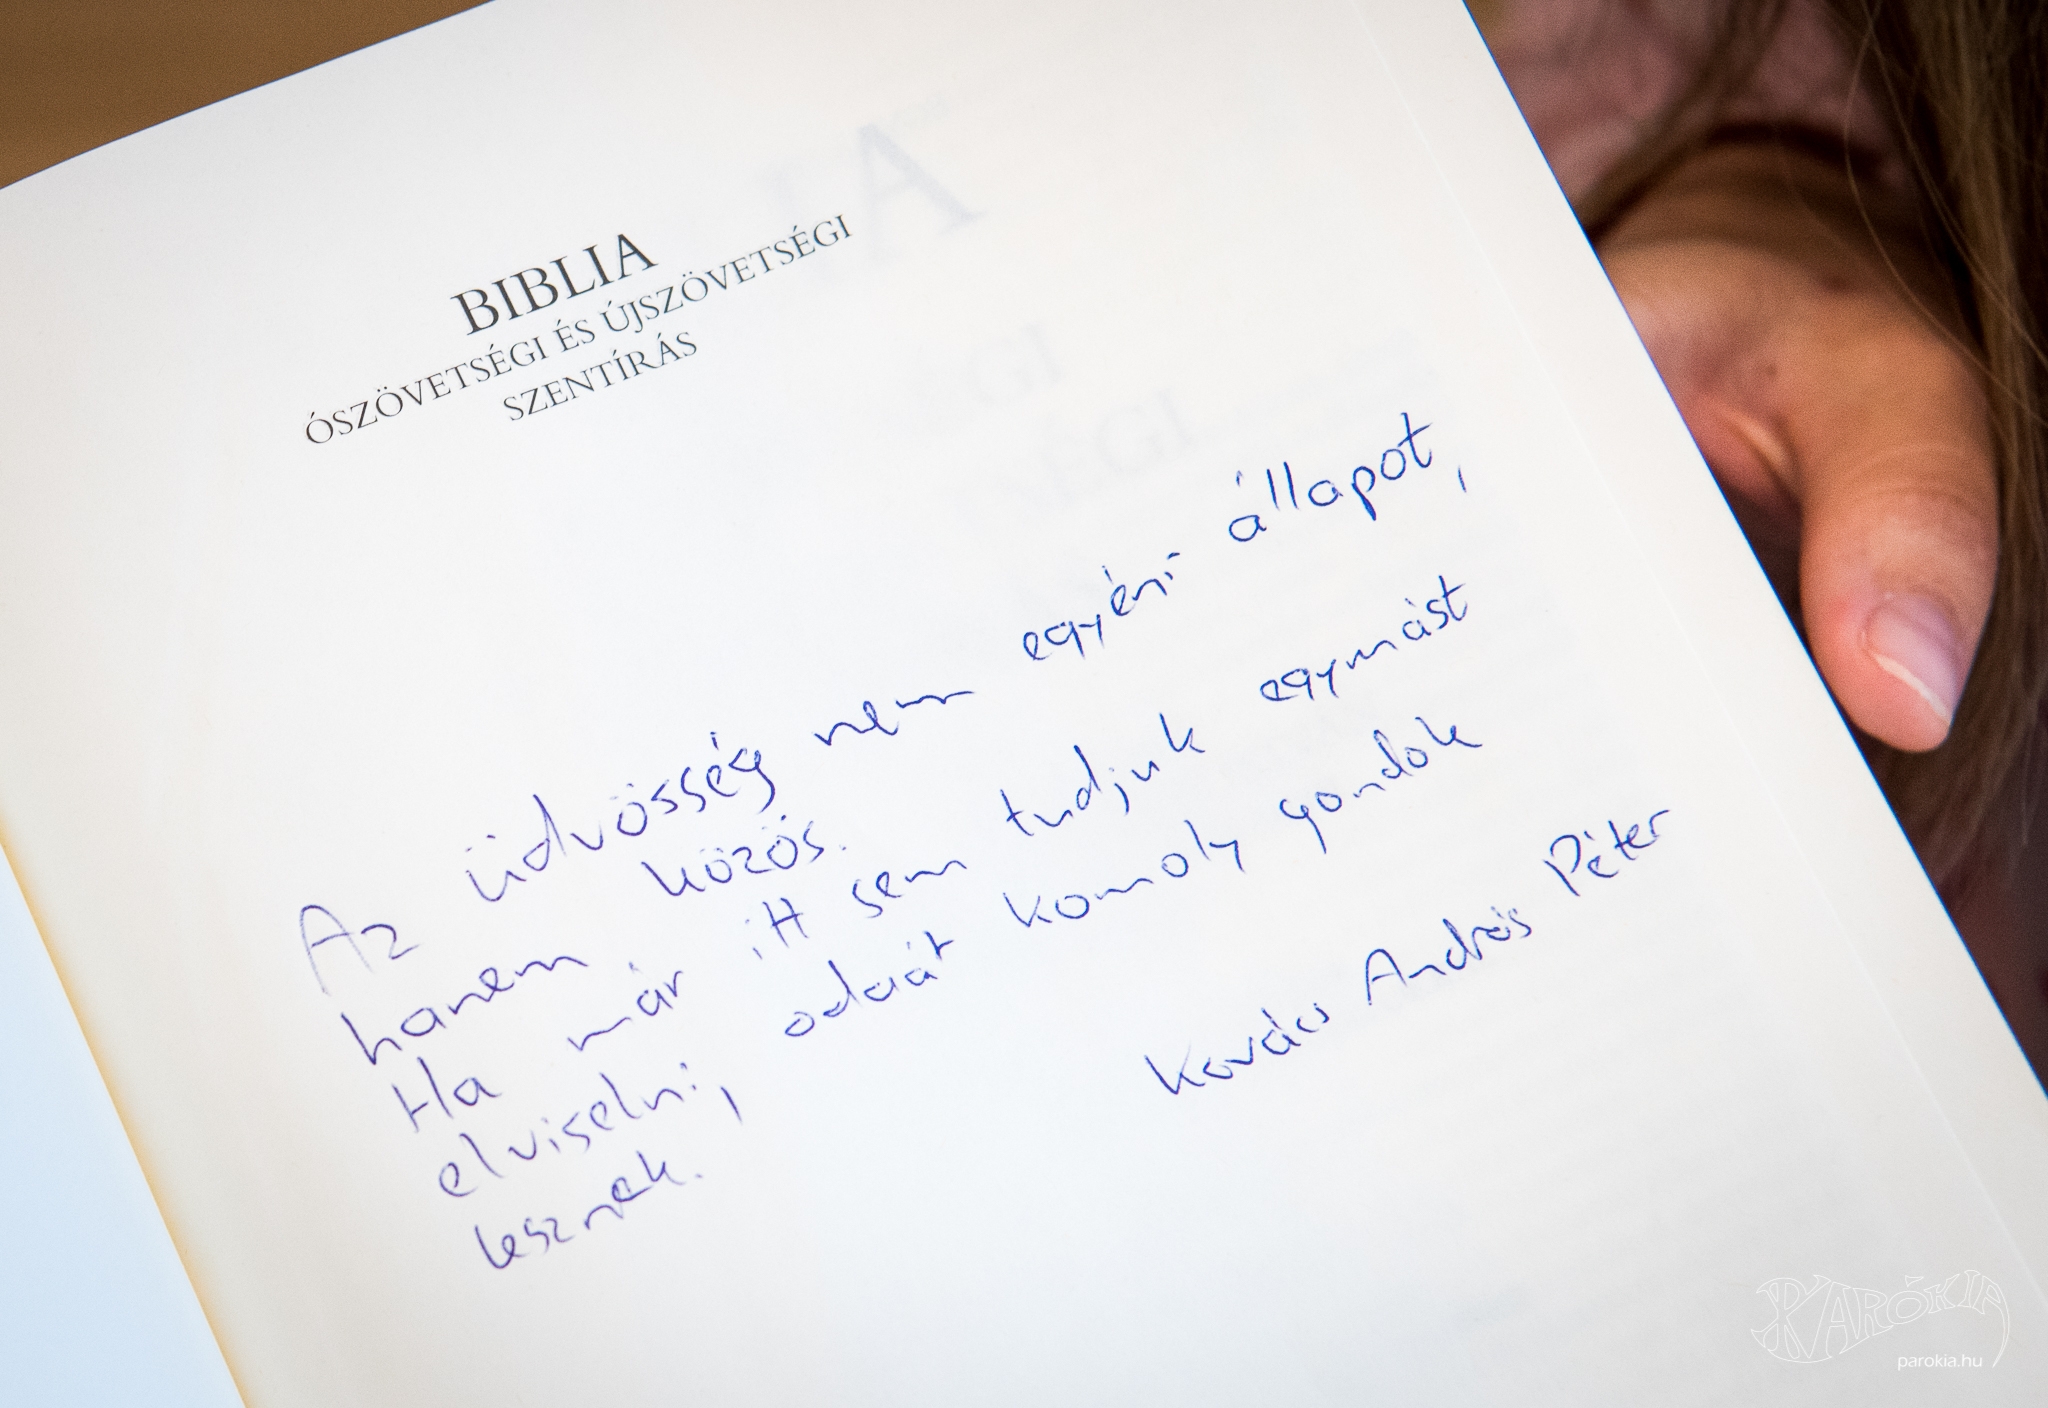 BIBLIA
ÓSZÖVETSÉGI ÉS ÚJSZÖVETSÉGI
SZENTÍRÁS
Az üdvösség nem egyéni állapot,
hanem közös.
Ha már itt sem tudjuk egymást
elviselni, odaát komoly gondok
lesznek.
Kovács András Péter
PARÓKIA
parokia.hu